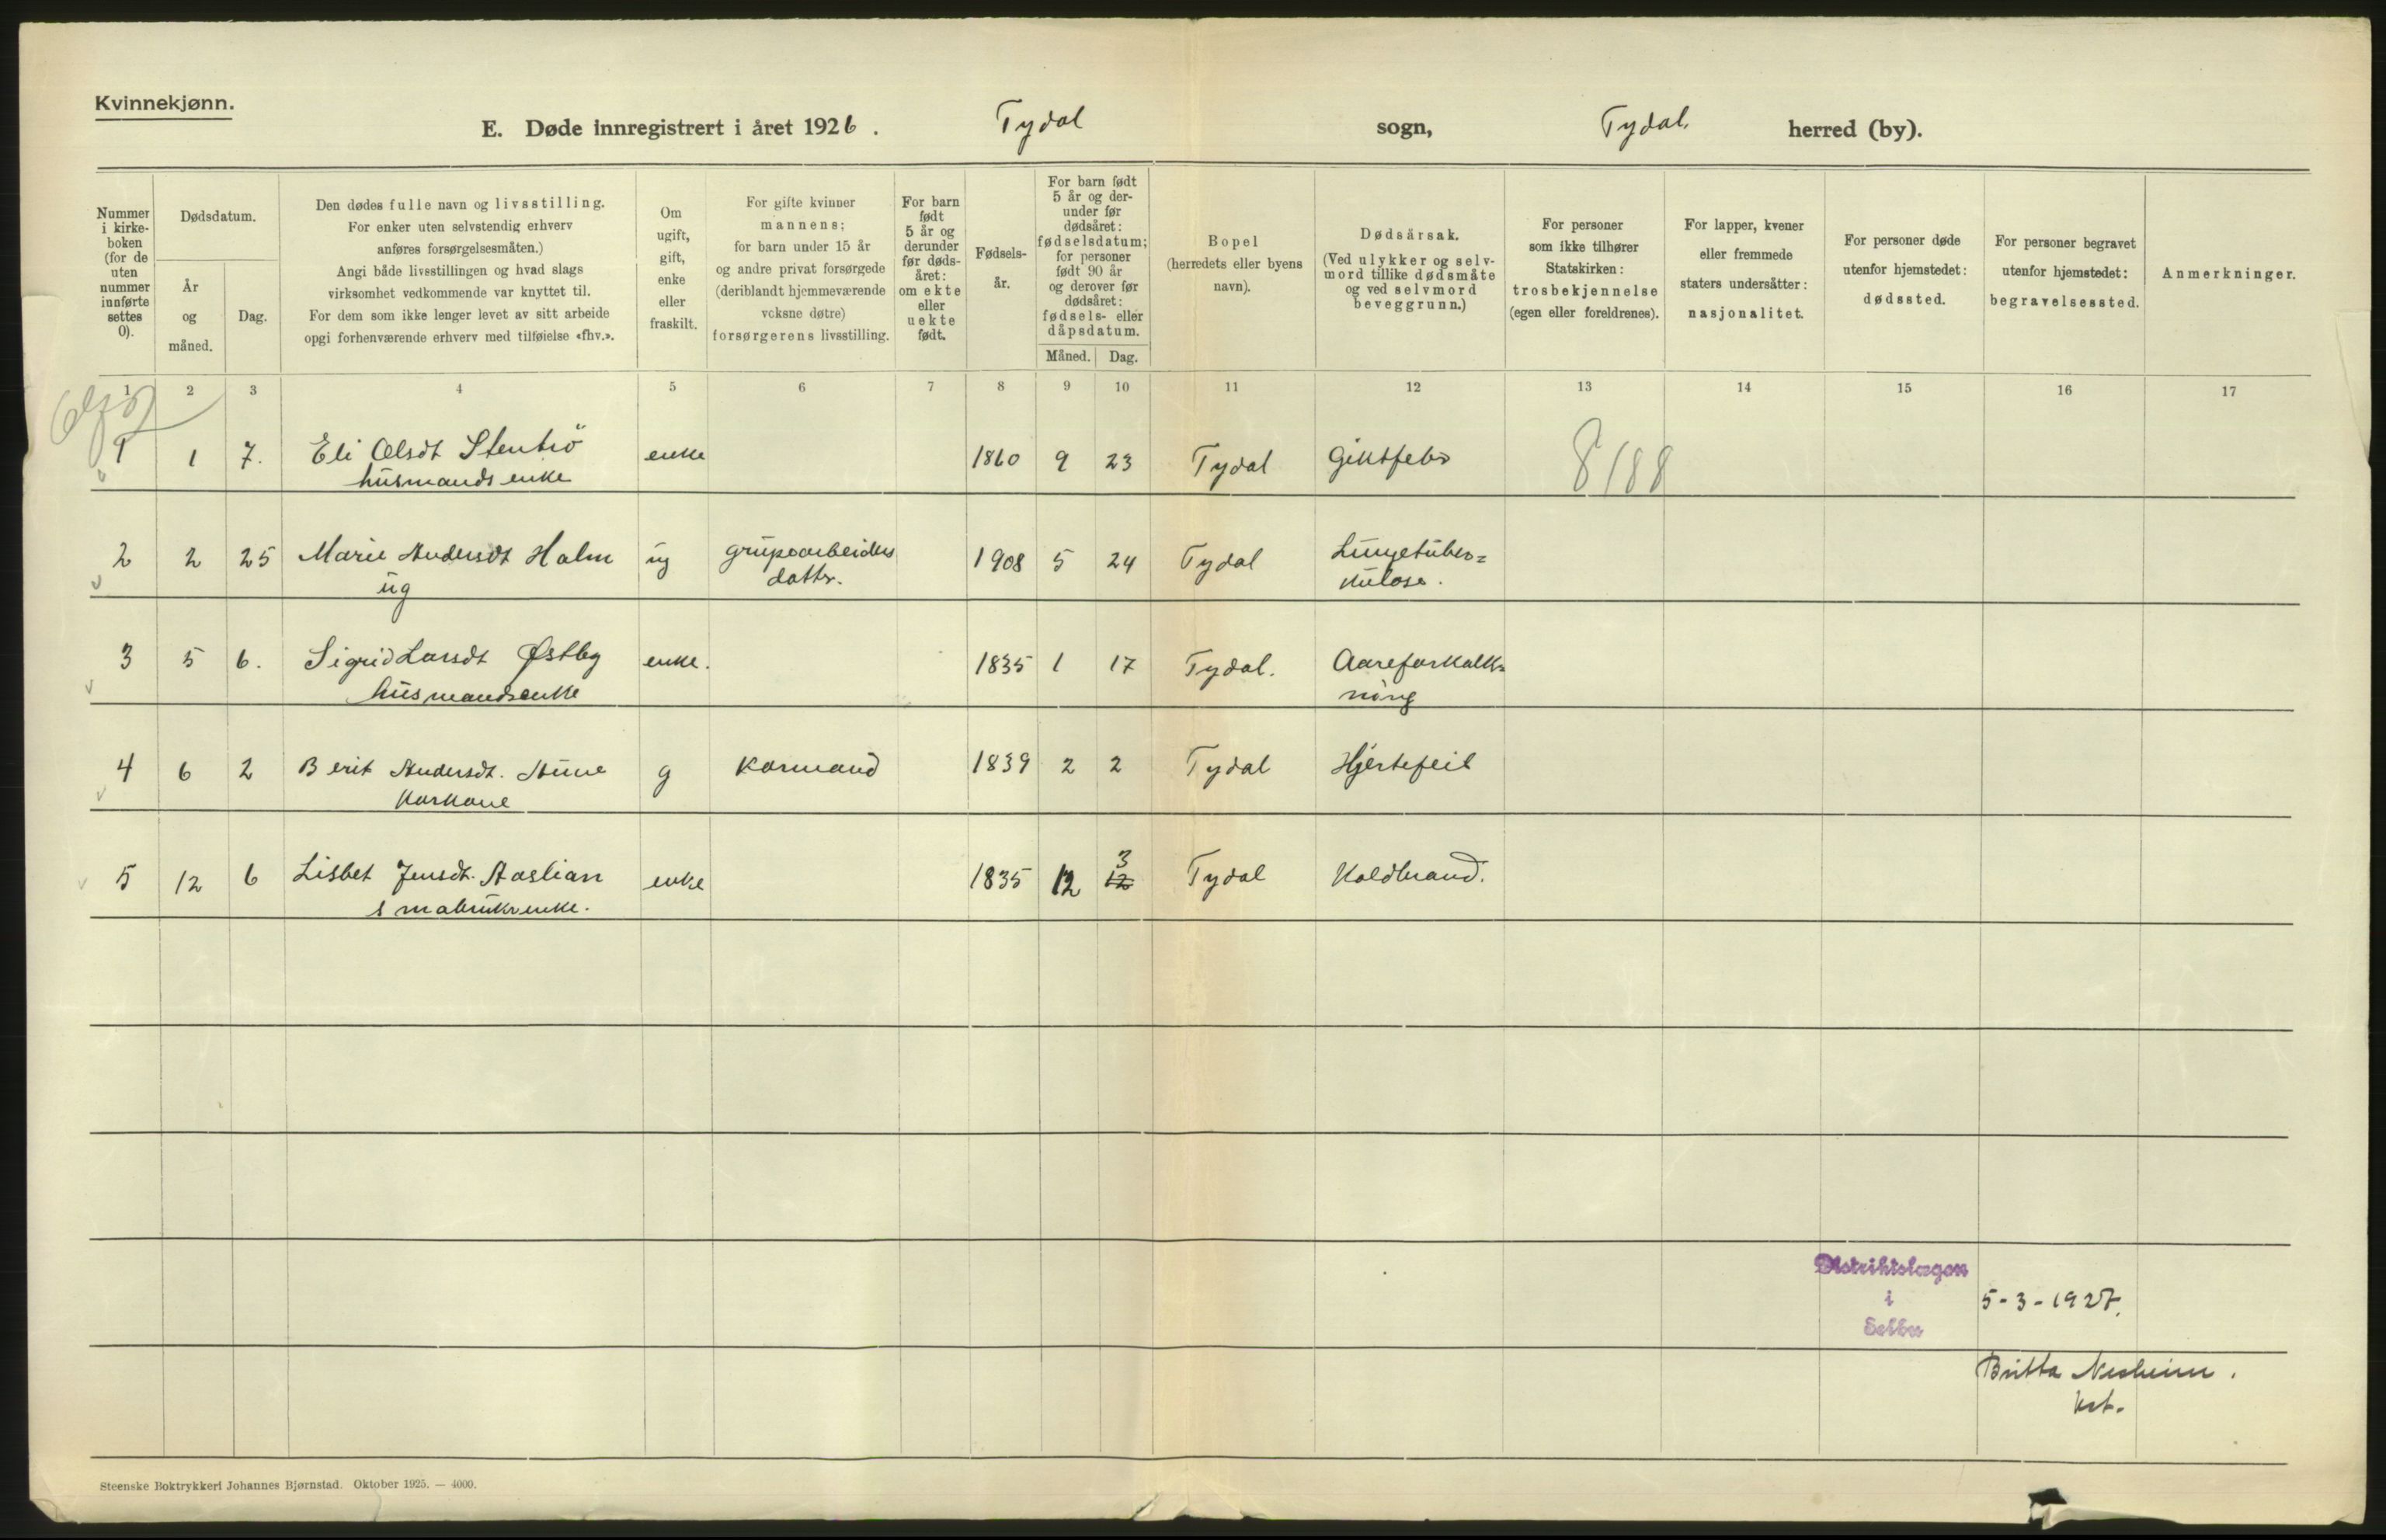 Kvinnekjønn.
E. Døde innregistrert i året 1926. Tydal sogn, Tydal. herred (by).
Nummer
i kirke-
boken
(for de
uten
nummer
innførte
settes
0).
Dødsdatum.
År
og
måned.
Dag.
Den dødes fulle navn og livsstilling.
For enker uten selvstendig erhverv
anføres forsørgelsesmåten.)
Angi både livsstillingen og hvad slags
virksomhet vedkommende var knyttet til.
For dem som ikke lenger levet av sitt arbeide
opgi forhenværende erhverv med tilføielse «fhv.».
Om
ugift,
gift,
enke
eller
fraskilt.
For gifte kvinner
mannens;
for barn under 15 år
og andre privat forsørgede
(deriblandt hjemmeværende
voksne døtre)
forsørgerens livsstilling.
For barn
født
5 år og
derunder
før døds-
året:
om ekte
eller
uekte
født.
Fødsels-
år.
For barn født
5 år og der-
under før
dødsåret:
fødselsdatum;
for personer
født 90 år
og derover før
dødsåret:
fødsels- eller
dåpsdatum.
Måned. Dag.
Bopel
(herredets eller byens
navn).
Dødsårsak.
(Ved ulykker og selv-
mord tillike dødsmåte
og ved selvmord
beveggrunn.)
For personer
som ikke tilhører
Statskirken:
trosbekjennelse
(egen eller foreldrenes).
For lapper, kvener
eller fremmede
staters undersåtter:
nasjonalitet.
For personer døde
utenfor hjemstedet:
dødssted.
For personer begravet
utenfor hjemstedet:
begravelsessted.
Anmerkninger.
1 2 3 4 5 6 7 8 9 10 11 12 13 14 15 16 17
1 1 7. Eli Olsdt enke 1860 9 23 Tydal Giktfeber 8188
husmands enke
2 2 25 Marie Andersdt Holm ug grubearbeiders 1908 5 24 Tydal Lungetuber=
ug datter. kulose.
3 5 6. Sigrid Larsdt Østby enke. 1835 1 17 Tydal. Aareforkalk=
husmandsenke ning
4 6 2 Berit Andersdt. g Kaarmand 1839 2 2 Tydal Hjertefeil
Kaarkone
3
5 12 6 Lisbet Jensdt. Aaslian enke 1835 12 12 Tydal Koldbrand.
smabrukrenke.
Distriktslægen
i
Selbu
5-3-1927.
Britta Nesheim.
kst.
Steenske Boktrykkeri Johannes Bjørnstad. Oktober 1925. — 4000.